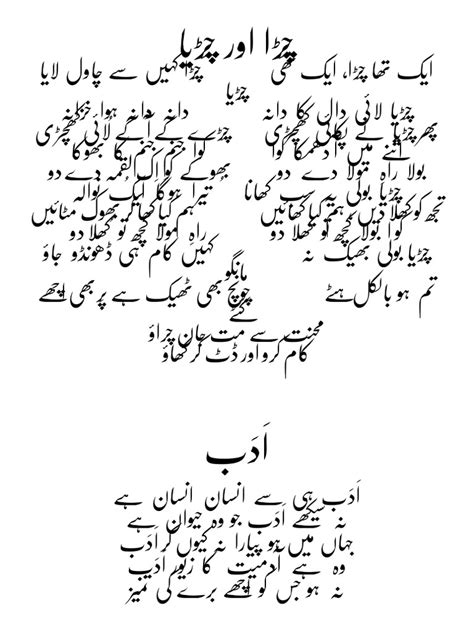 چڑا اور چڑیا
ایک تھا چڑا، ایک تھی چڑیا چڑا کہیں سے چاول لایا
چڑیا لائی دال کا دانہ دانہ دانہ ہوا خزانہ
پھر چڑیا نے پکائی کھچڑی چڑے کے آگے لائی کھچڑی
اتنے میں آدھمکا کوا کوا جنم جنم کا بھوکا
بولا راہِ مولا دے دو بھوکے کو اِک لقمہ دے دو
چڑیا بولی یہ سب کھانا تیرا ہوگا ایک نوالہ
تجھ کو کھلا دیں ہم کیا کھائیں ہم کیا کھا کر بھوک مٹائیں
کوا بولا مجھ کو کھلا دو راہِ مولا مجھ کو کھلا دو
چڑیا بولی بھیک نہ مانگو کہیں کام ہی ڈھونڈو جاؤ
تم ہو بالکل ہٹے کٹے چونچ بھی ٹھیک ہے پر بھی اچھے
محنت سے مت جان چراؤ
کام کرو اور ڈٹ کر کھاؤ
اَدَب
اَدَب ہی سے انسان انسان ہے
نہ سیکھے اَدَب جو وہ حیوان ہے
جہاں میں ہو پیارا نہ کیوں کر اَدَب
وہ ہے آدمیت کا زیور اَدَب
نہ ہو جس کو اچھے برے کی تمیز